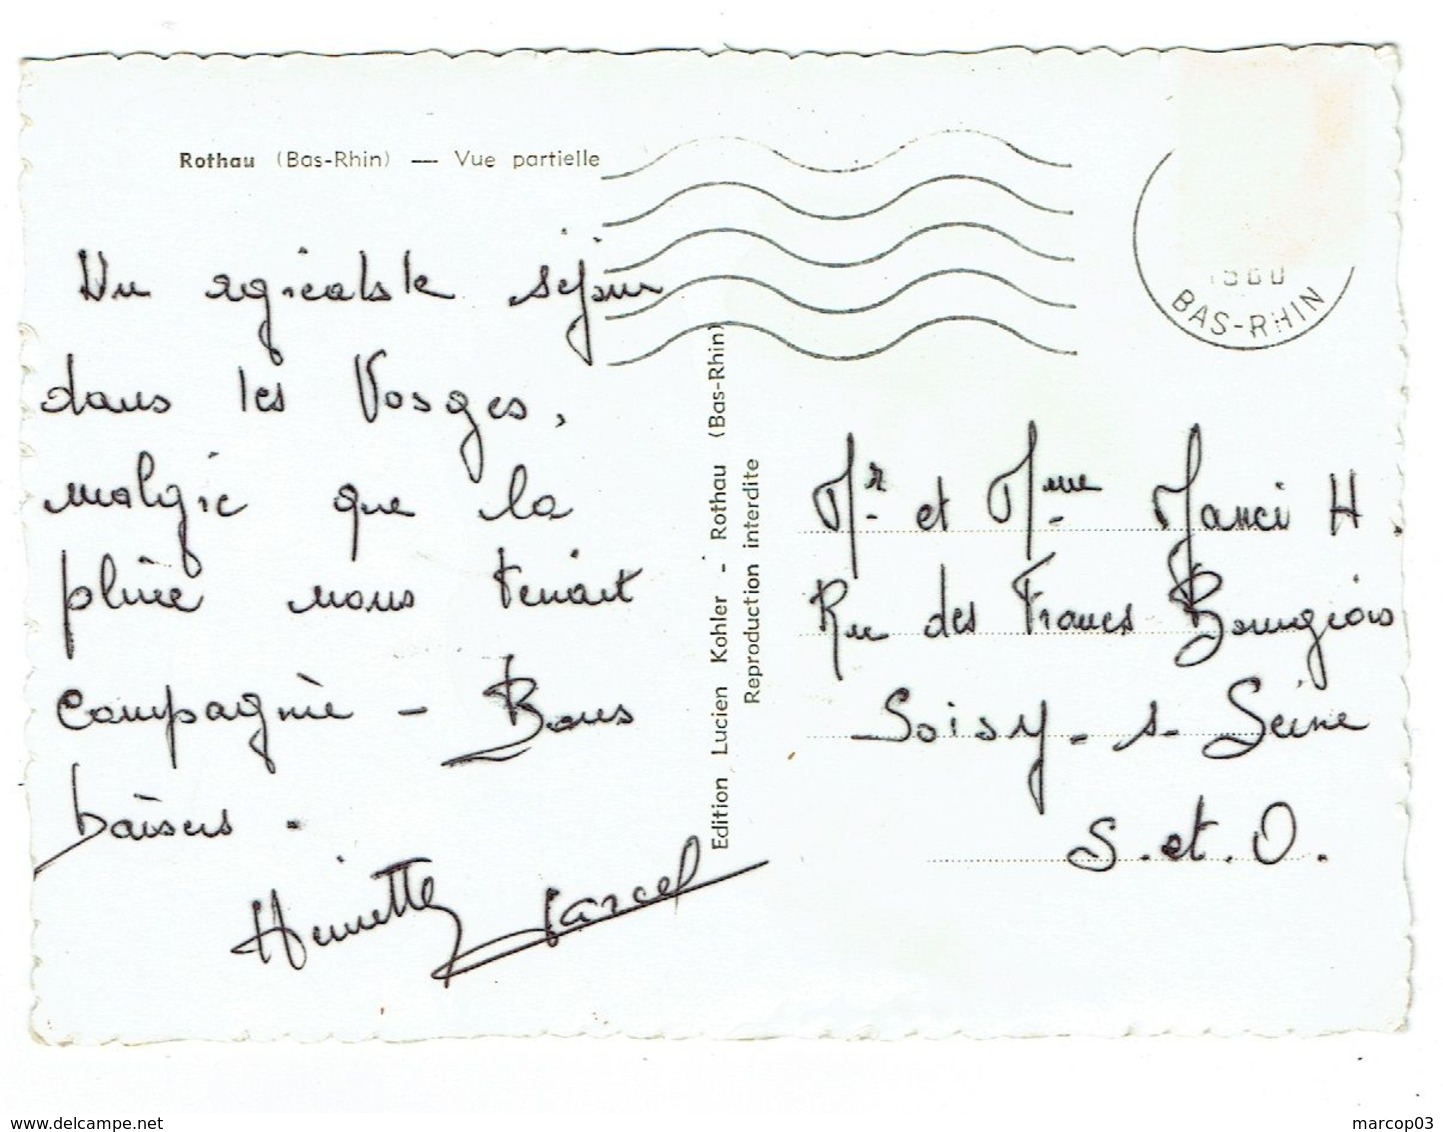 Rothau (Bas-Rhin) — Vue partielle
Un agréable séjour
dans les Vosges,
malgré que la
pluie nous tenait
compagnie - Bons
baisers.
Henriette Marcel
Edition Lucien Kohler - Rothau (Bas-Rhin)
Reproduction interdite
BAS-RHIN
Mr et Mme H.
Rue des Francs Bourgeois
Soisy-s-Seine
S.et.O.
www.delcampe.net
marcop03